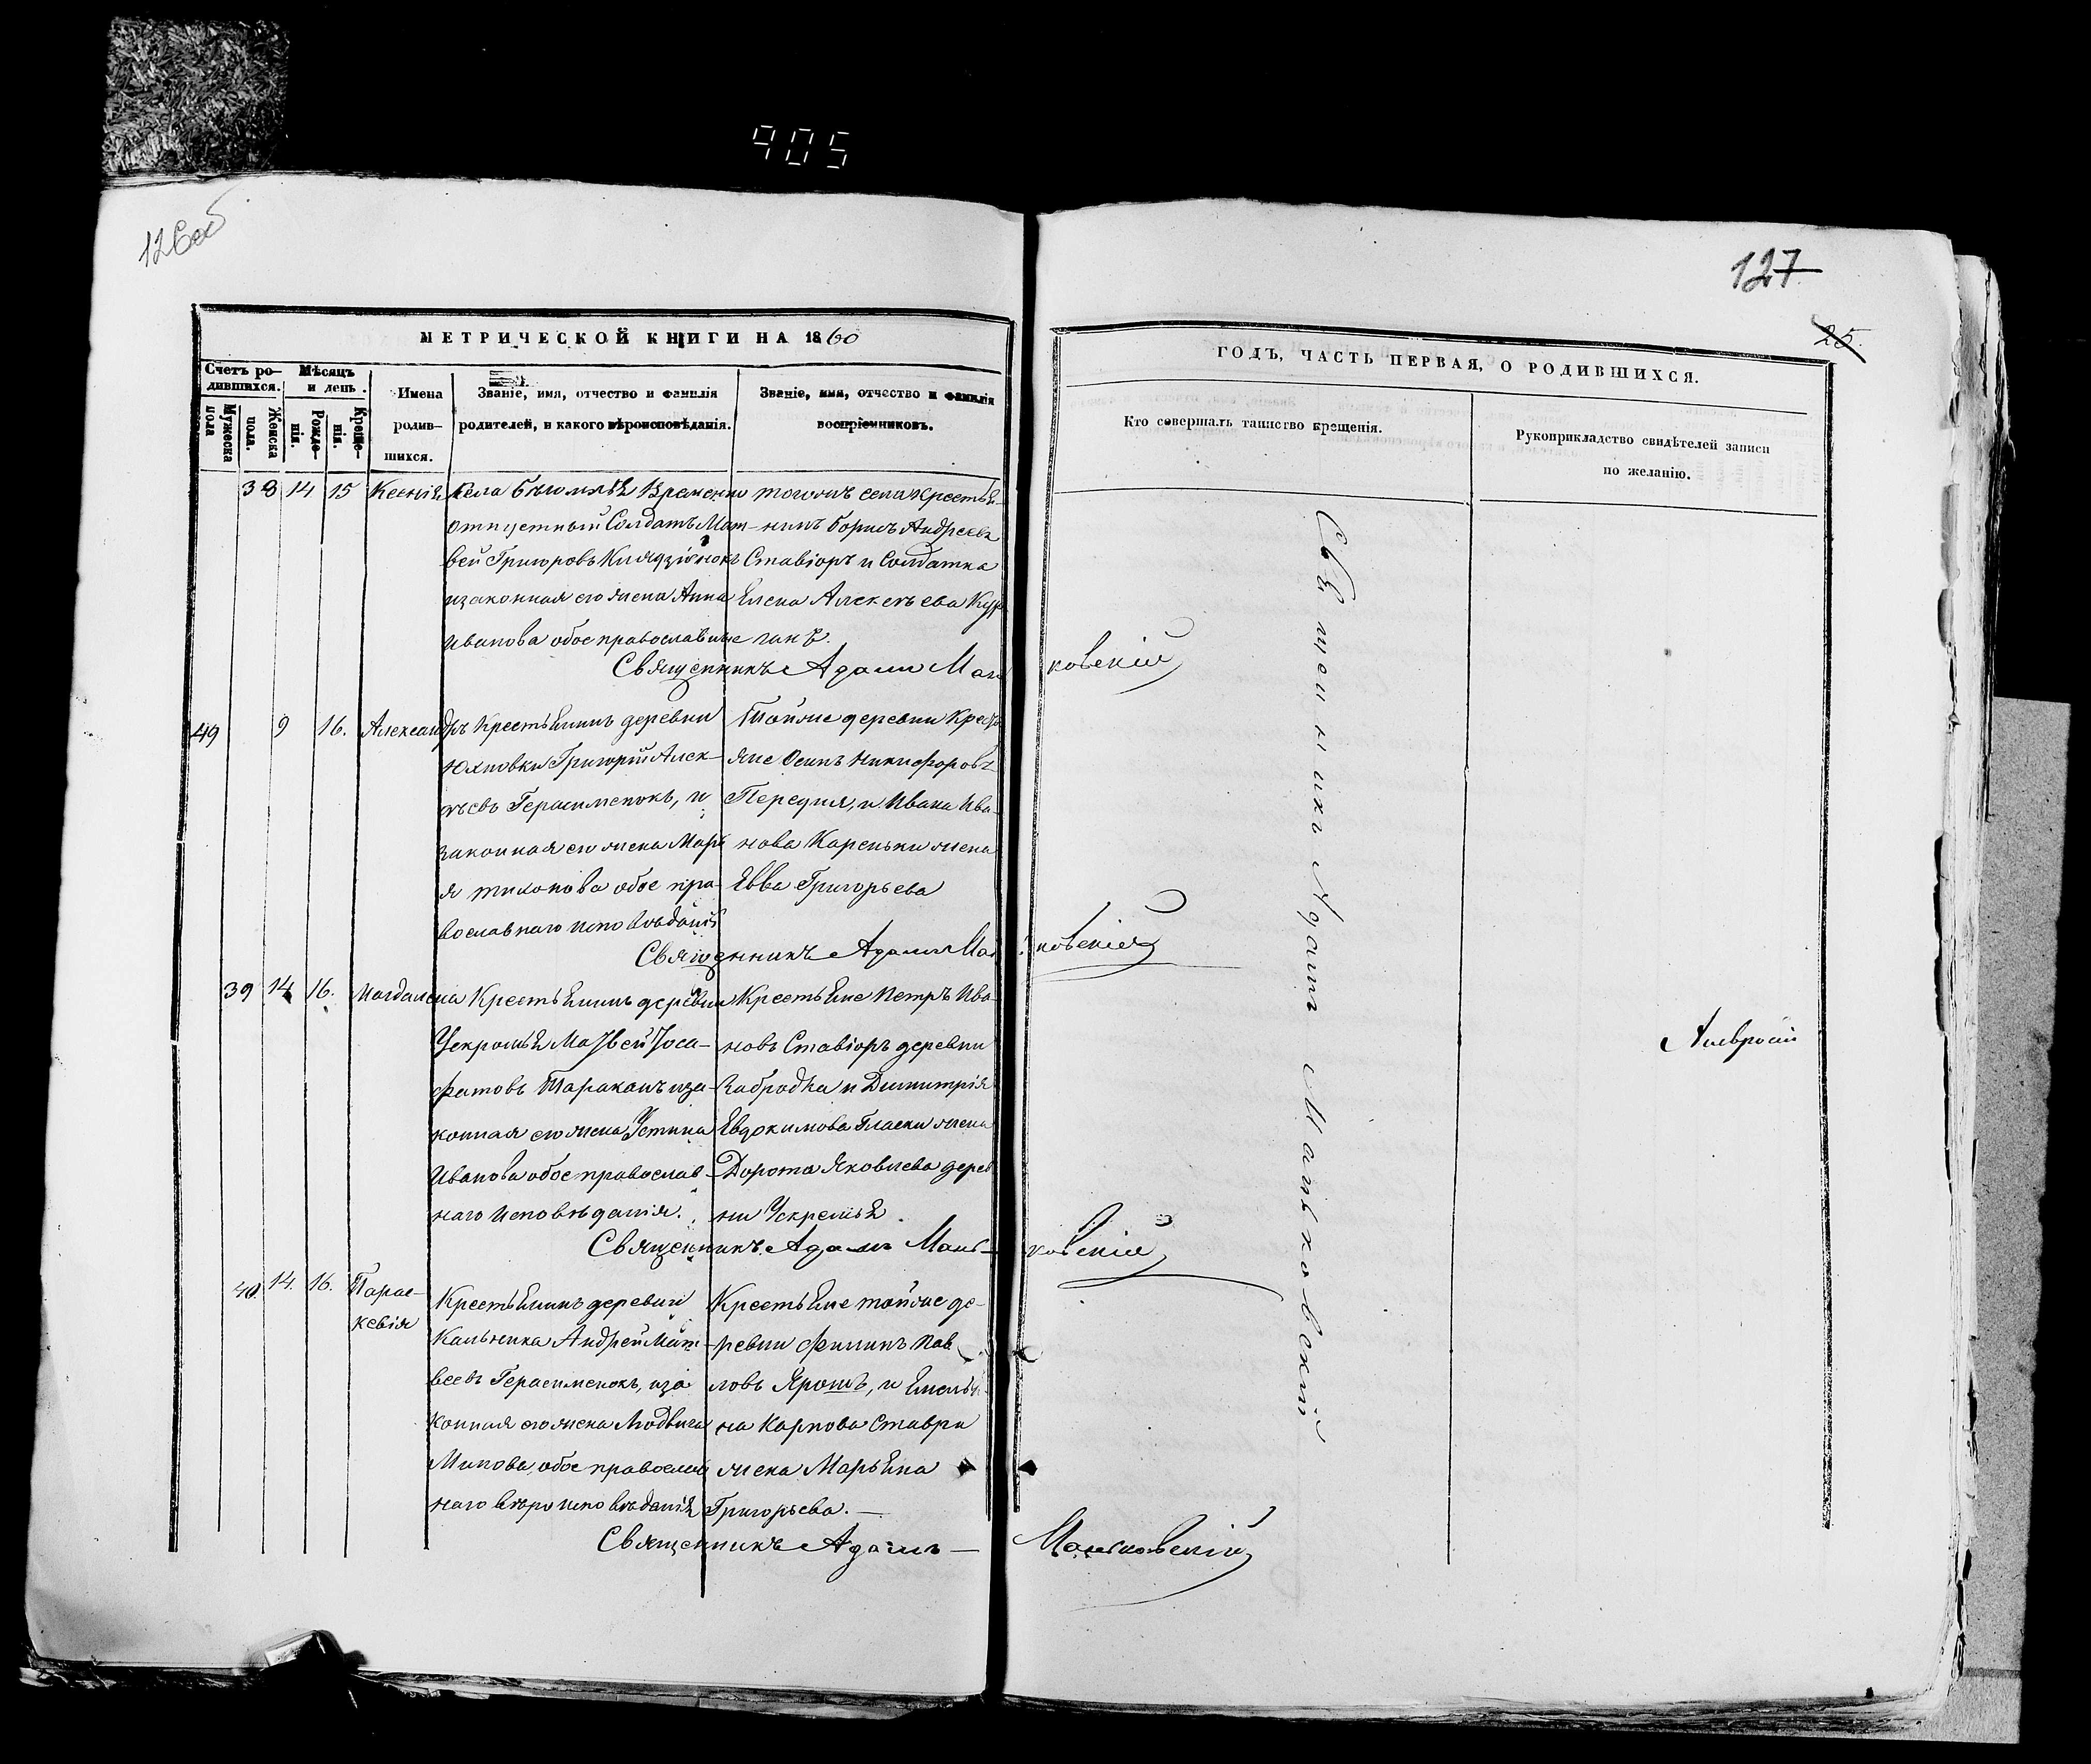 405
126 об
127
25.
МЕТРИЧЕСКОЙ КНИГИ НА 1860
ГОДЪ, ЧАСТЬ ПЕРВАЯ, О РОДИВШИХСЯ.
Счетъ ро-
дившихся.
Мужеска
пола
Женска
пола.
Мѣсяцъ
и день.
Рожде-
нія.
Креще-
нія.
Имена
родив-
шихся.
Званіе, имя, отчество и фамилія
родителей, и какого вѣроисповѣданія.
Званіе, имя, отчество и фамилія
воспріемниковъ.
Кто совершалъ таинство крещенія.
Рукоприкладство свидѣтелей записи
по желанію.
38 14 15 Ксенія
Села Бѣгомля Временно
отпустный Солдатъ Мат-
вей Григоровъ
изаконная его жена Анна
Иванова обое православные
тогожъ села Крестья-
нинъ Борисъ Андреевъ
Ставіоръ и Солдатка
Елена Алексѣева
Священникъ Адамъ Маньковскій
49 9 16. Александръ
Крестьянинъ деревни
Юхновки Григорій Алек-
ѣевъ Герасименокъ, и
законная его жена Марь
я Тихонова обое пра-
вославнаго исповѣданія
Тойже деревни Крест
яне Осипъ Никифоровъ
Передня, и Ивана Ива-
нова Кареньки жена
Евва Григорьева
Священникъ Адамъ Маньковскій
39 14 16. Магдалена
Крестьянинъ деревни
Ускромья Матвей Іоса-
фатовъ Тараканъ иза-
конная его жена Устина
Иванова обое православ-
наго исповѣданія.
Крестьяне Петръ Ива-
новъ Ставіоръ деревни
Забродья и Димитрія
Евдокимова Гласки жена
Дорота Яковлева дерев
ни Ускремья
Священникъ Адамъ Маньковскій
40 14. 16. Парас-
кевія
Крестьянинъ деревни
Кальника Андрей Мат-
веевъ Герасименокъ, иза
конная его жена Людвига
Минова, обое православ
наго вѣроисповѣданія
Крестьяне тойже де-
ревни Филипъ Пав
ловъ Ярошъ, и Емелья
на Карпова Ставри
жена Марьяна
Григорьева. —
Священникъ Адамъ — Маньковскій
Священникъ Адамъ Маньковскій
Амвросій